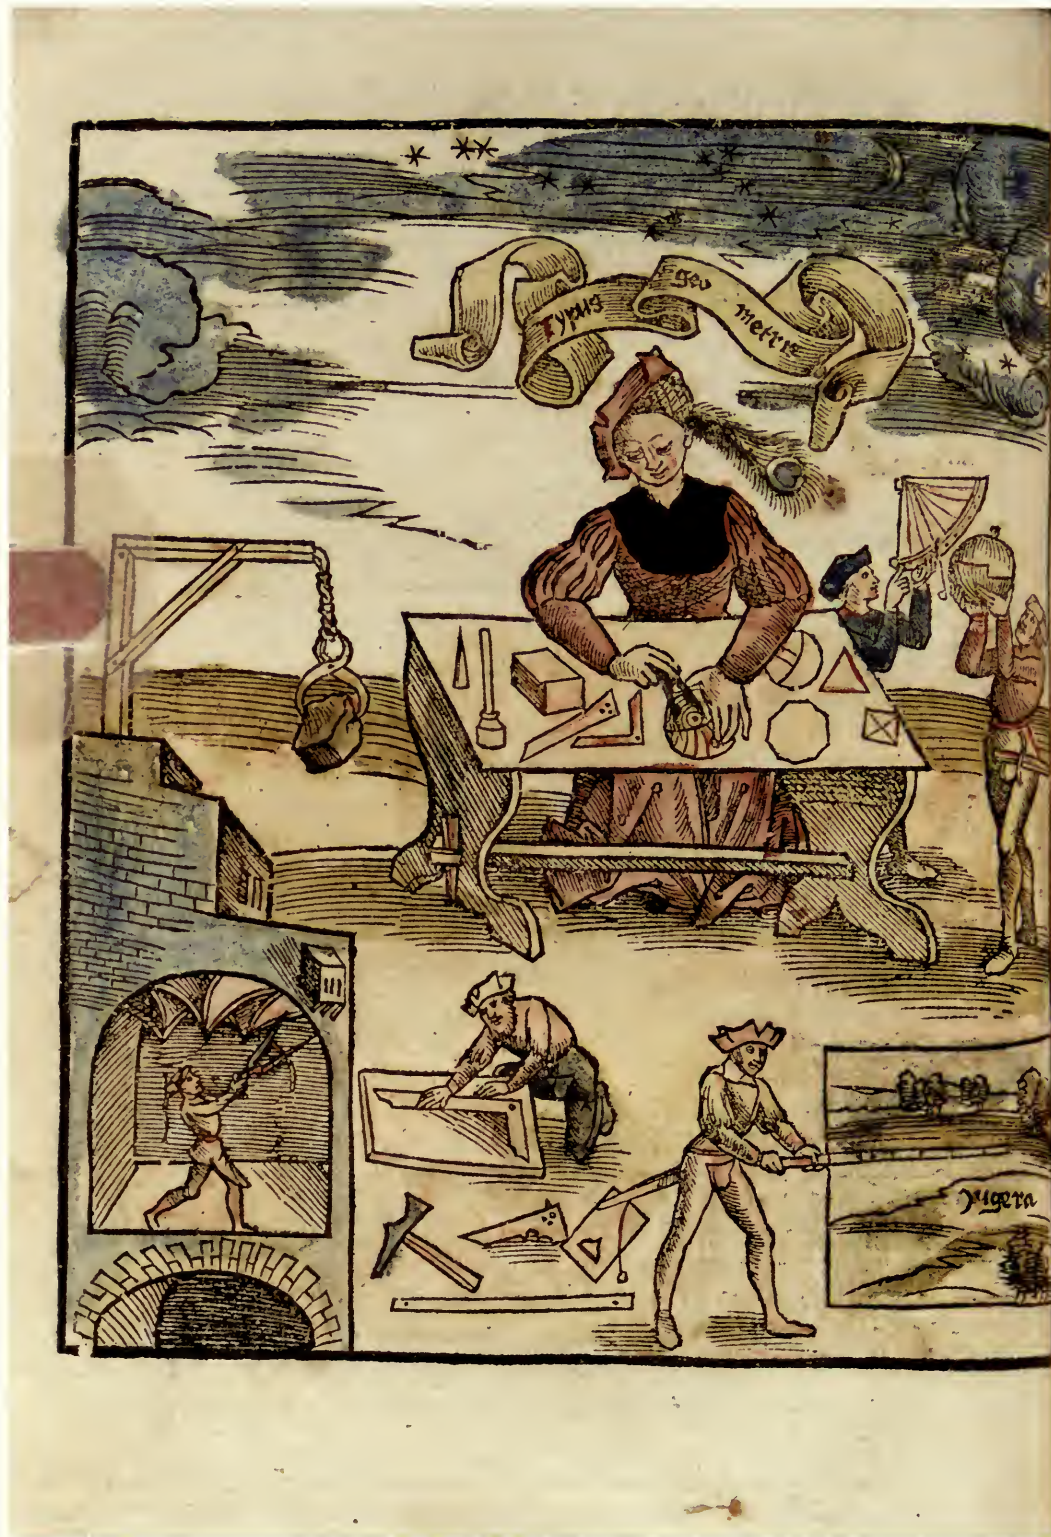 Typus geo metrie
Jugera